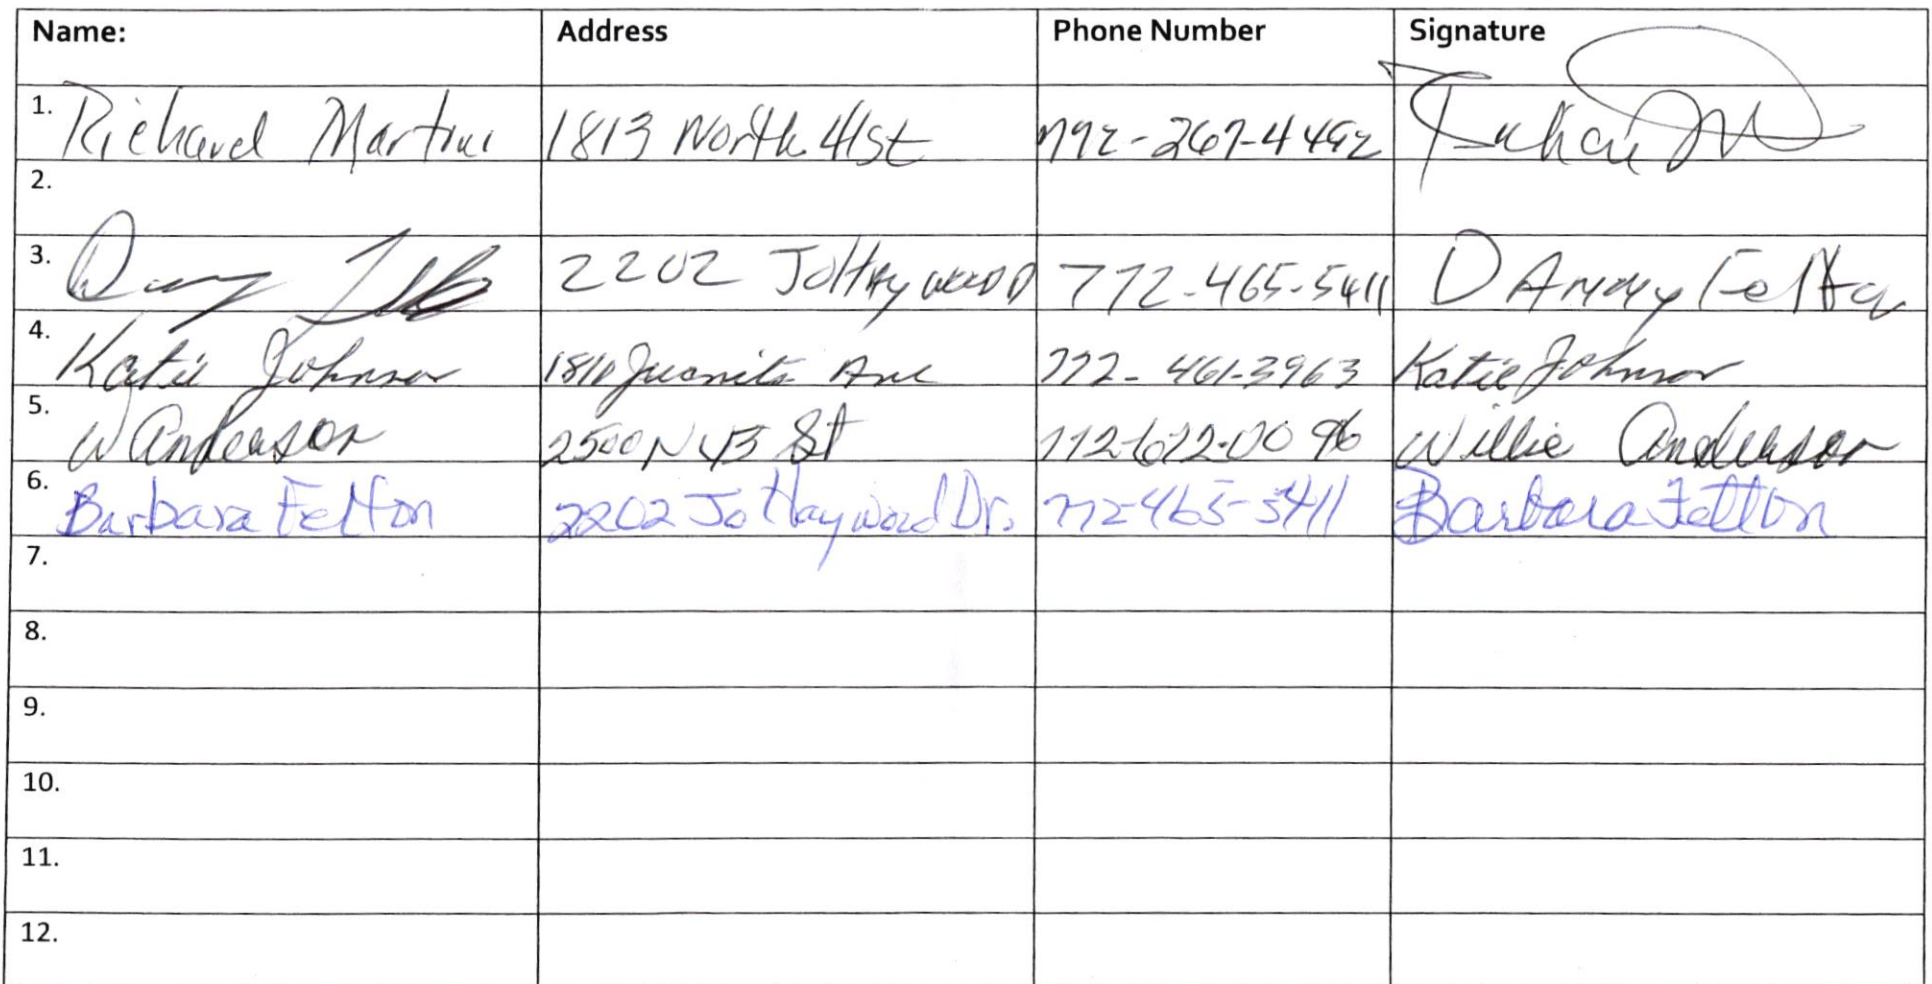 Name: Address Phone Number Signature
1. Richard 1813 North 41st 772-267-4492
2.
3. 2202 Jo Haywood D 772-465-5411 DANNY Felton
4. Katie Johnson 1810 Juanita Ave 772-461-3963 Katie Johnson
5. W Anderson 2500 N 43 St 772-672-0096 Willie Anderson
6. Barbara Felton 2202 Jo Haywood Dr. 772-465-5411 Barbara Felton
7.
8.
9.
10.
11.
12.